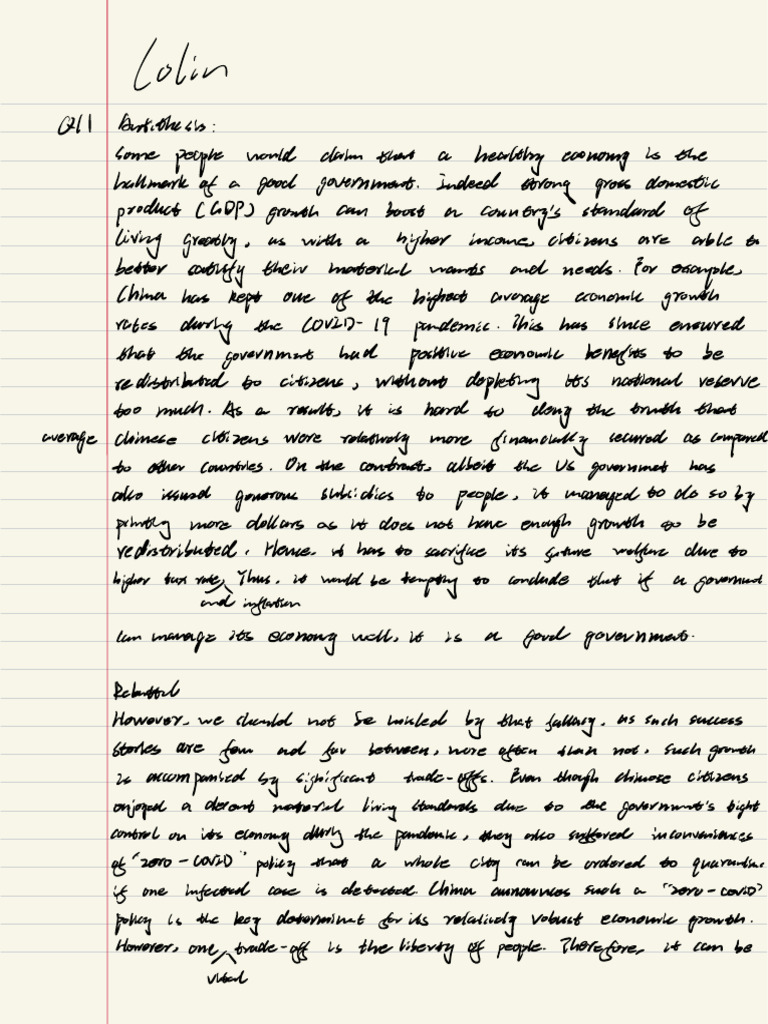 Colin
Q11 Antithesis:
Some people would claim that a healthy economy is the
hallmark of a good government. Indeed strong gross domestic
product (GDP) growth can boost a country's standard of
living greatly, as with a higher income, citizens are able to
better satisfy their material wants and needs. For example,
China has kept one of the highest average economic growth
rates during the COVID-19 pandemic. This has since ensured
that the government had positive economic benefits to be
redistributed to citizens, without depleting its national reserve
too much. As a result, it is hard to deny the truth that
average chinese citizens were relatively more financially secured as compared
to other countries. On the contract, albeit the US governmet has
also issued generous subsidies to people, it managed to do so by
printly more dollars as it does not have enough growth to be
redistributed. Hence. it has to sacrifice its future welfare due to
higher tax rate, Thus, it would be tempting to conclude that if a government
and inflation
can manage its economy well, it is a good government.
Rebuttal
However, we should not be misled by that fallacy, as such success
stories are few and far between, more often than not, such growth
is accompanied by significant trade-offs. Even though chinese citizens
enjoyed a decent material living standards due to the government's tight
control on its economy during the pandemic, they also suffered inconveniences
of "zero-COVID" policy that a whole city can be ordered to quarantine
if one infected case is detected. China announces such a "zero-covid"
policy is the key determinant for its relatively robust economic growth.
However, one trade-off is the liberty of people. Therefore, it can be
vital